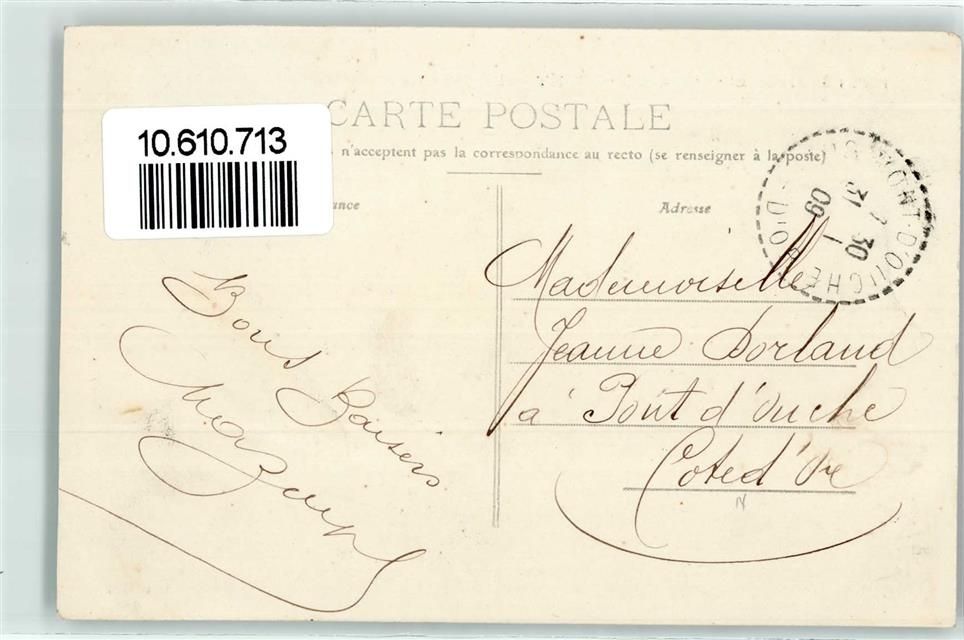 CARTE POSTALE
10.610.713
n'acceptent pas la correspondance au recto (se renseigner à la poste)
ance
Adresse
PONT-D'OUCHE
D'OR
30 31
1 09
Mademoiselle
Jeanne Dorland
à Pont d'ouche
Cote d'Or
Bons Baisers